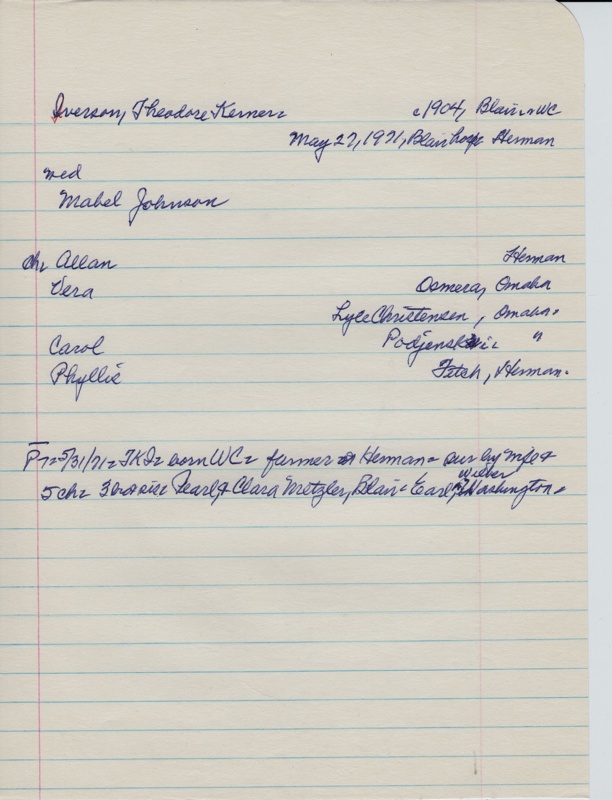 Iverson, Theodore Kerner c1904, Blair WC
May 27, 1971, Blair hosp Herman
wed
Mabel Johnson
ch: Allan Herman
Vera Osmera, Omaha
Lyle Christensen, Omaha
Carol "
Phyllis Fitch, Herman
P 7 5/31/71 TKI born WC farmer Herman sur by wife &
5 ch 3 bro sis Pearl & Clara Metzler, Blair Earl Wilbur Washington